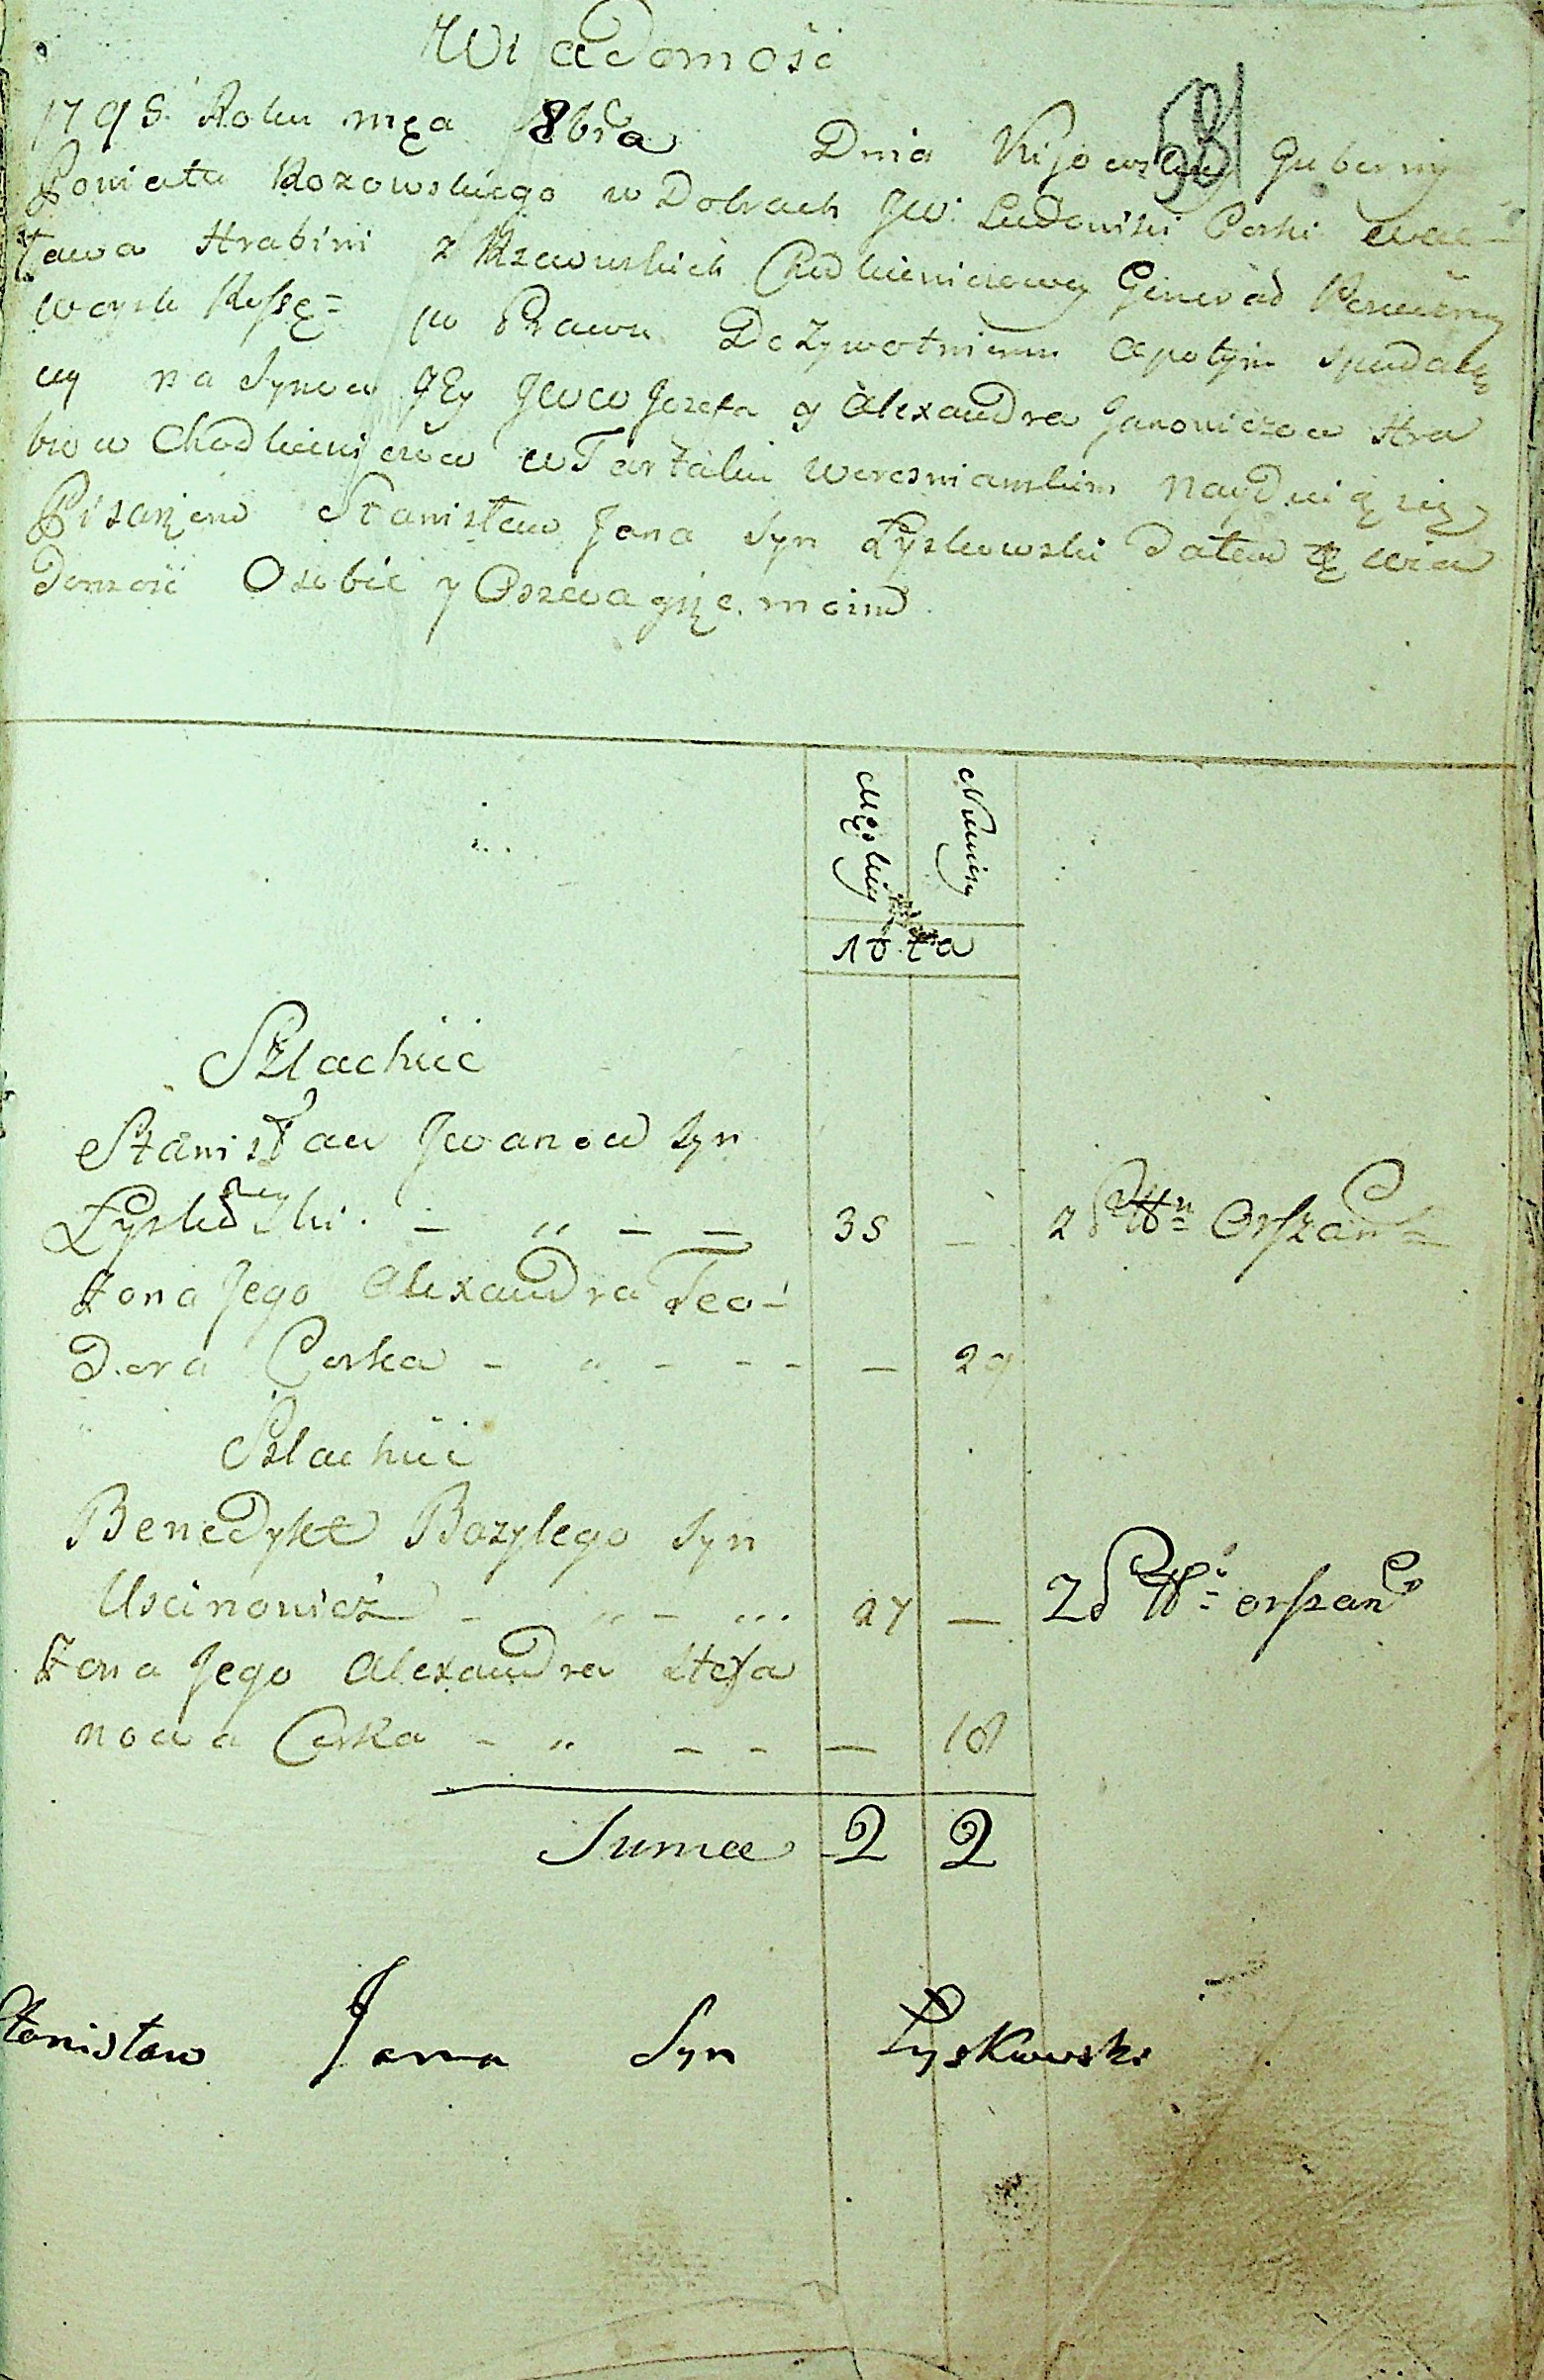 Wiadomość
58
1795 Roku mça 8bra Dnia Kijowskiey Guberniy
Powiatu Rozowskiego w Dobrach JW: Ludowiki Corki
tawa Hrabini z Rzewuskich Chodkieniczowey Generad
woysk Ross= w Prawu Dożywotnium apotym spadaią
cy na Synow JEy JWW Jozefa y Alexandra Janowiczow Hra
biow Chodkieniczow w Tartaku Weresnianskim Nayduią się
Pisarzem Stanisław Jana Syn Łyskowski Dałem tę wia
Domość Osobie y moim
Męskiey
lata
Szlachcic
Stanisław Jwanow Syn
Łyskowski . — „ — — 35 — z Orszan
Żona Jego Alexandra Teo-
Dora Corka - „ - - - — 29
Szlachcic
Benedykt Bazylego Syn
Uscinowicz - - „ - ... 27 — z orszan
Żona Jego Alexandra Stefa
nowa Corka - „ - - — 18
Suma 2 2
Stanisław Jana Syn Łyskowski